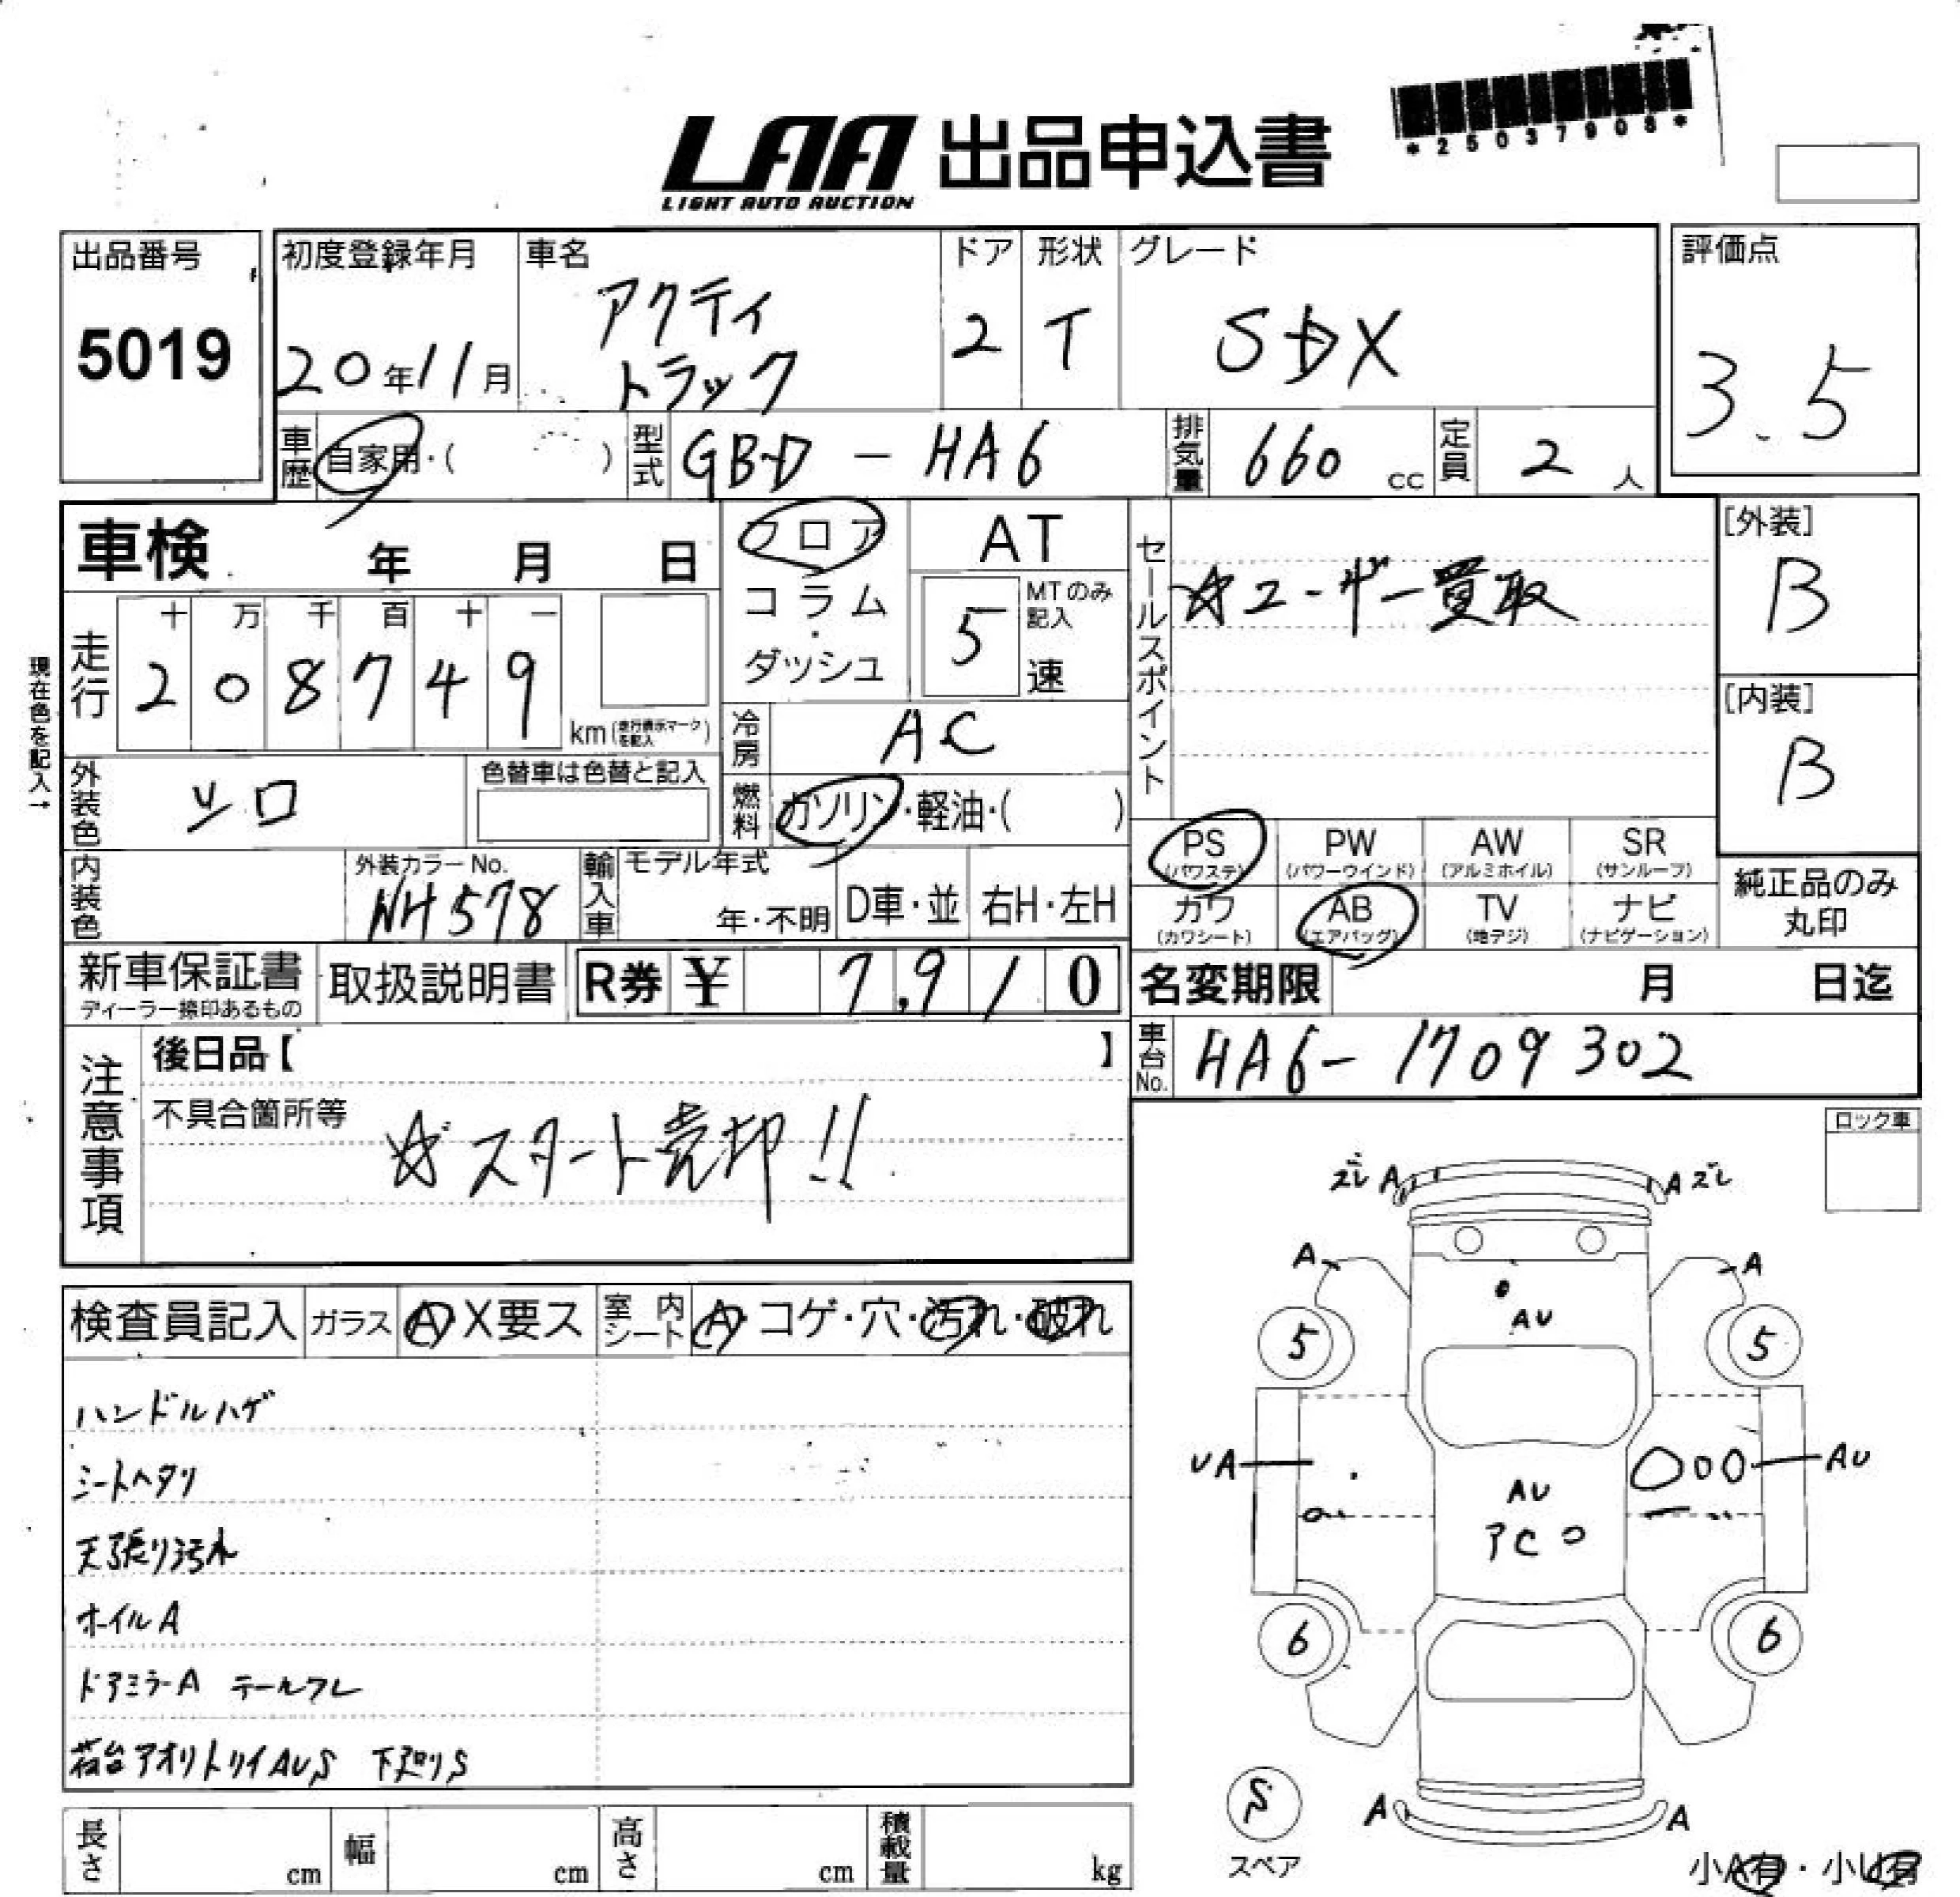 *25037908*
LAA 出品申込書
LIGHT AUTO AUCTION
出品番号
5019
初度登録年月
20年11月
車名
アクティ
トラック
ドア
2
形状
T
グレード
SDX
評価点
3.5
車歴
自家用・( )
型式
GBD-HA6
排気量
660 cc
定員
2 人
車検 年 月 日
フロア
コラム
・
ダッシュ
AT
5
MTのみ
記入
速
セールスポイント
☆ユーザー買取
[外装]
B
[内装]
B
現在色を記入→
走行
十 万 千 百 十 一
2 0 8 7 4 9
km (走行表示マークを記入)
冷房
AC
外装色
シロ
色替車は色替と記入
燃料
ガソリン・軽油・( )
PS
(パワステ)
PW
(パワーウインド)
AW
(アルミホイル)
SR
(サンルーフ)
カワ
(カワシート)
AB
(エアバッグ)
TV
(地デジ)
ナビ
(ナビゲーション)
純正品のみ
丸印
内装色
外装カラーNo.
NH578
輸入車
モデル年式
年・不明
D車・並
右H・左H
新車保証書
ディーラー捺印あるもの
取扱説明書
R券 ¥ 7,910
名変期限 月 日迄
車台No.
HA6-1709302
注意事項
後日品【 】
不具合箇所等
☆スタート売却!!
ロック車
検査員記入
ガラス
A X要ス
室内
シート
A・コゲ・穴・汚れ・破れ
ハンドルハゲ
シートヘタリ
天張り汚れ
ホイルA
ドアミラーA テールワレ
荷台アオリトリイAUS 下廻りS
ズレ A
A ズレ
A
A
AU
5
5
UA
AU
AU
アCO
6
6
S
スペア
A
A
小A有・小U有
長さ cm
幅 cm
高さ cm
積載量 kg